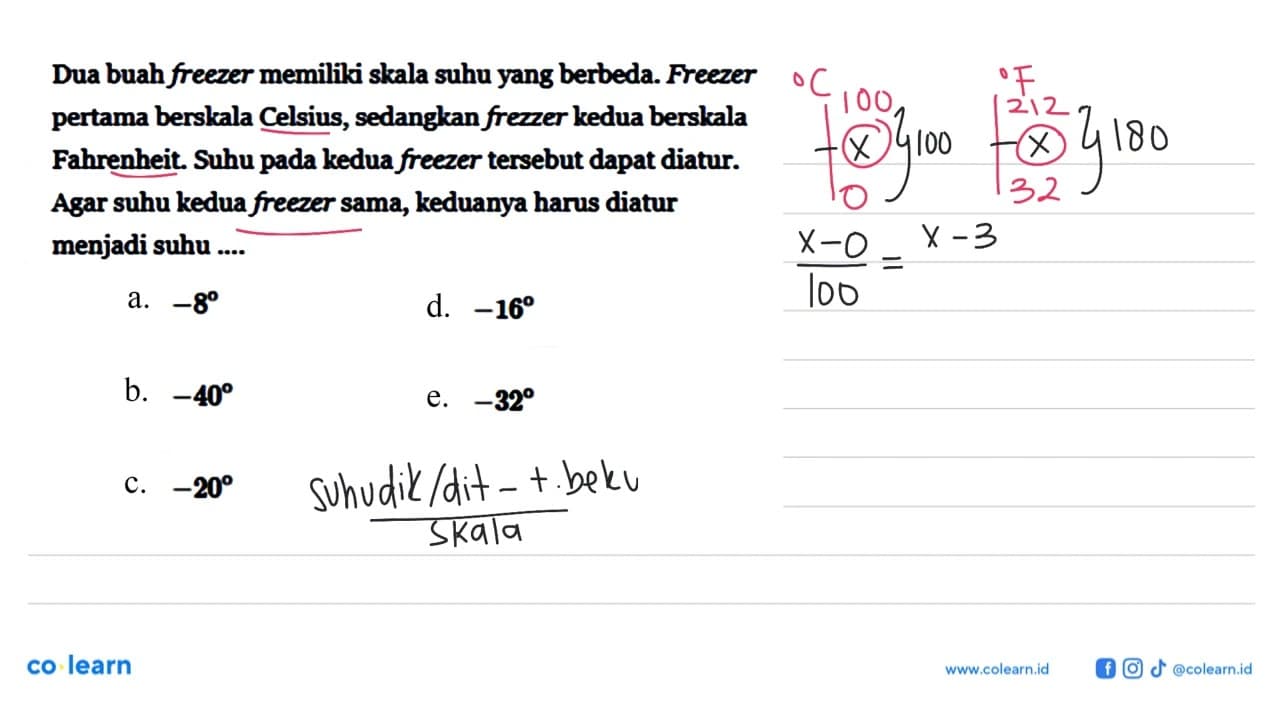 Dua buah freezer memiliki skala suhu yang berbeda. Freezer
pertama berskala Celsius, sedangkan frezzer kedua berskala
Fahrenheit. Suhu pada kedua freezer tersebut dapat diatur.
Agar suhu kedua freezer sama, keduanya harus diatur
menjadi suhu ....
a. –8°
d. –16°
b. –40°
e. –32°
c. –20°
suhu dik/dit – t.beku
skala
°C
100
x } 100
0
°F
212
x } 180
32
x – 0 = x – 3
100
co learn
www.colearn.id
@colearn.id